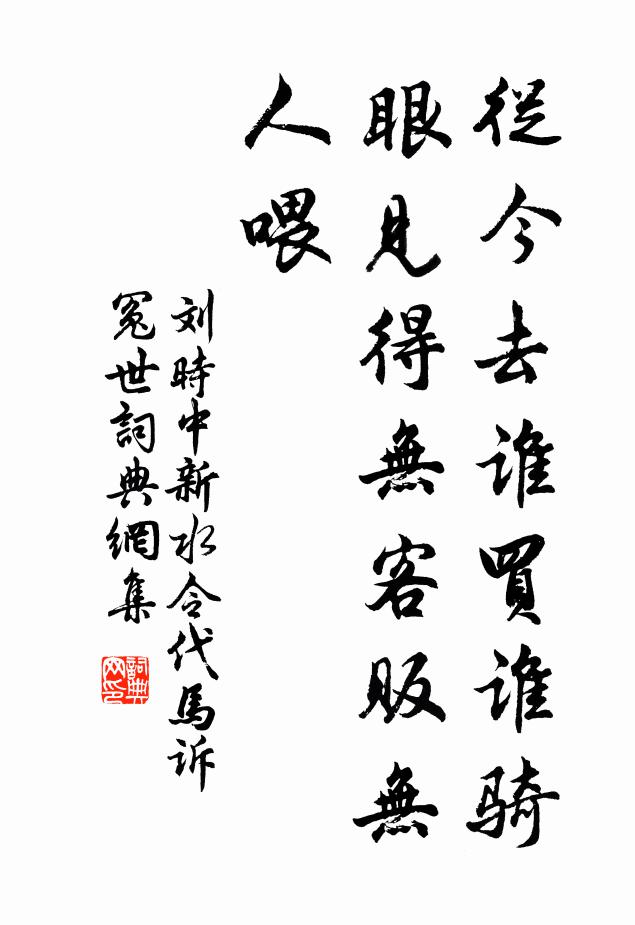 從今去誰買誰骑
眼見得無客販無
人喂
刘時中新水令代馬诉
冤世詞典網集
詞典
网印